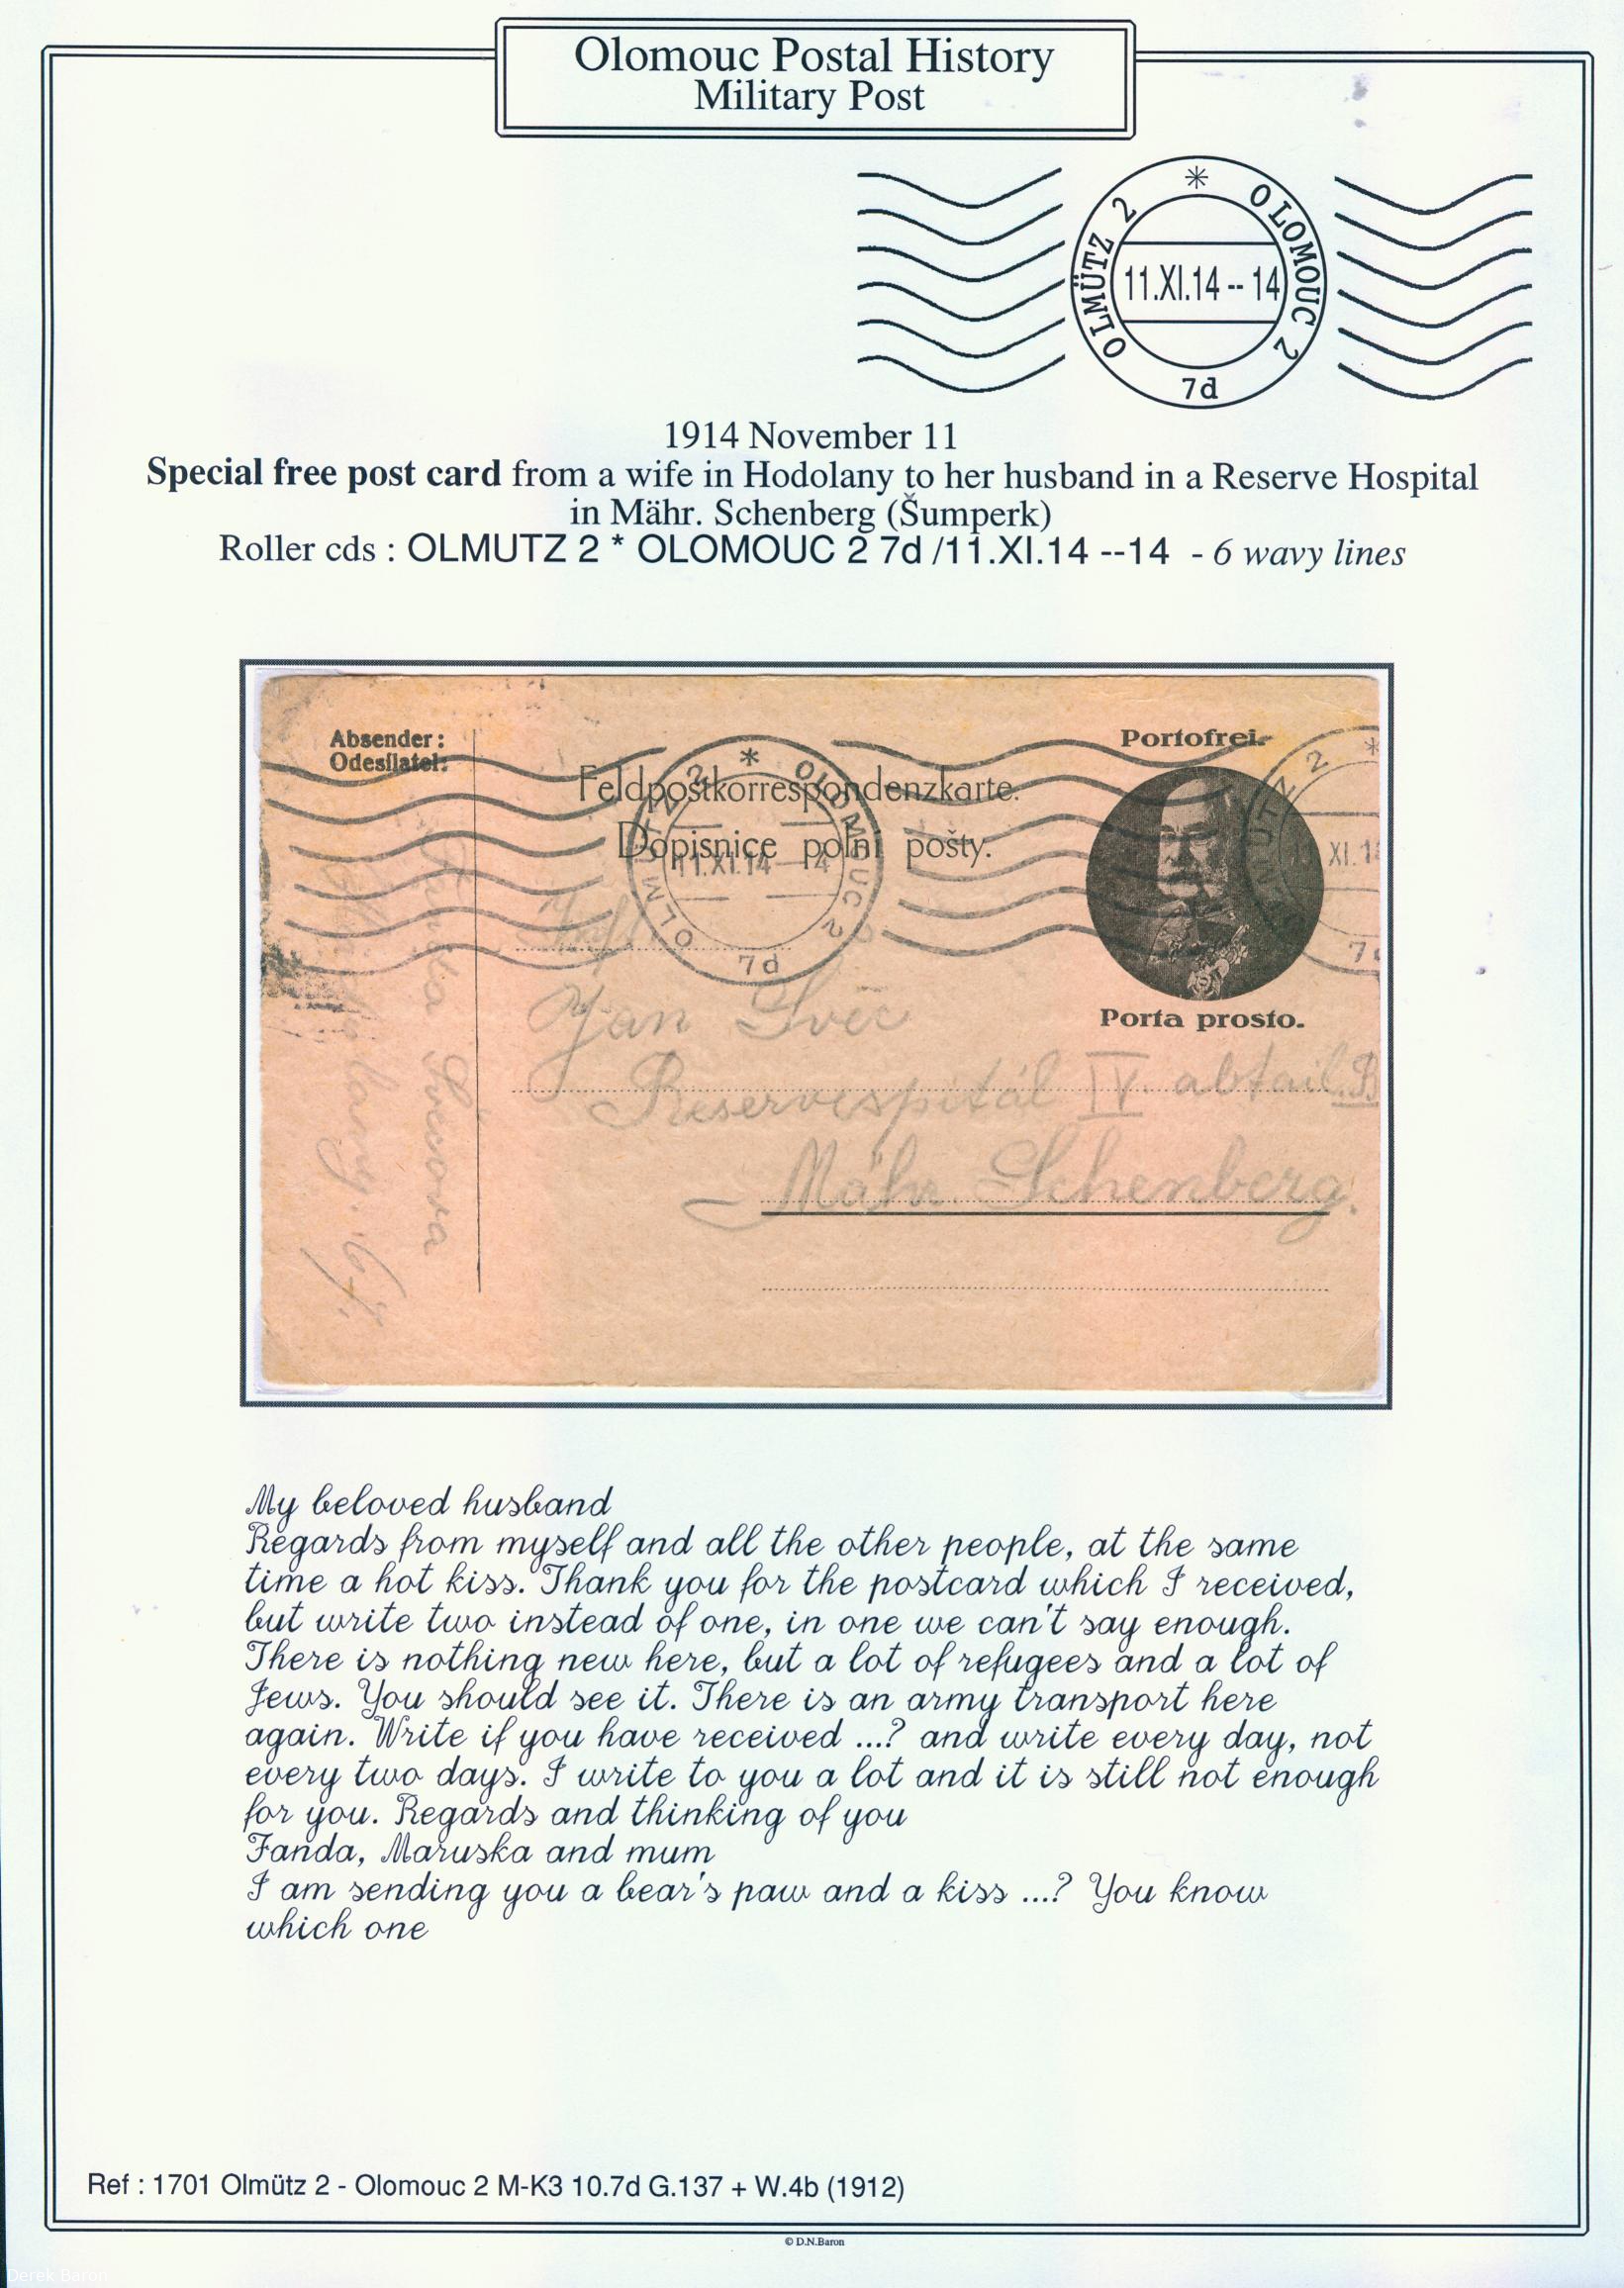 Olomouc Postal History
Military Post
OLMÜTZ 2 * OLOMOUC 2
11.XI.14 -- 14
7d
1914 November 11
Special free post card from a wife in Hodolany to her husband in a Reserve Hospital
in Mähr. Schenberg (Šumperk)
Roller cds : OLMUTZ 2 * OLOMOUC 2 7d /11.XI.14 --14 - 6 wavy lines
Absender:
Odesílatel:
Feldpostkorrespondenzkarte.
Dopisnice polní pošty.
Portofrei.
Porta prosto.
OLMÜTZ 2 * OLOMOUC 2
11.XI.14 — 14
7d
XI.1
Jan Švec
Reservespitál IV. abtail. B
Mähr. Schenberg.
Svecova
My beloved husband
Regards from myself and all the other people, at the same
time a hot kiss. Thank you for the postcard which I received,
but write two instead of one, in one we can't say enough.
There is nothing new here, but a lot of refugees and a lot of
Jews. You should see it. There is an army transport here
again. Write if you have received ...? and write every day, not
every two days. I write to you a lot and it is still not enough
for you. Regards and thinking of you
Fanda, Maruska and mum
I am sending you a bear's paw and a kiss ...? You know
which one
Ref : 1701 Olmütz 2 - Olomouc 2 M-K3 10.7d G.137 + W.4b (1912)
© D.N.Baron
Derek Baron